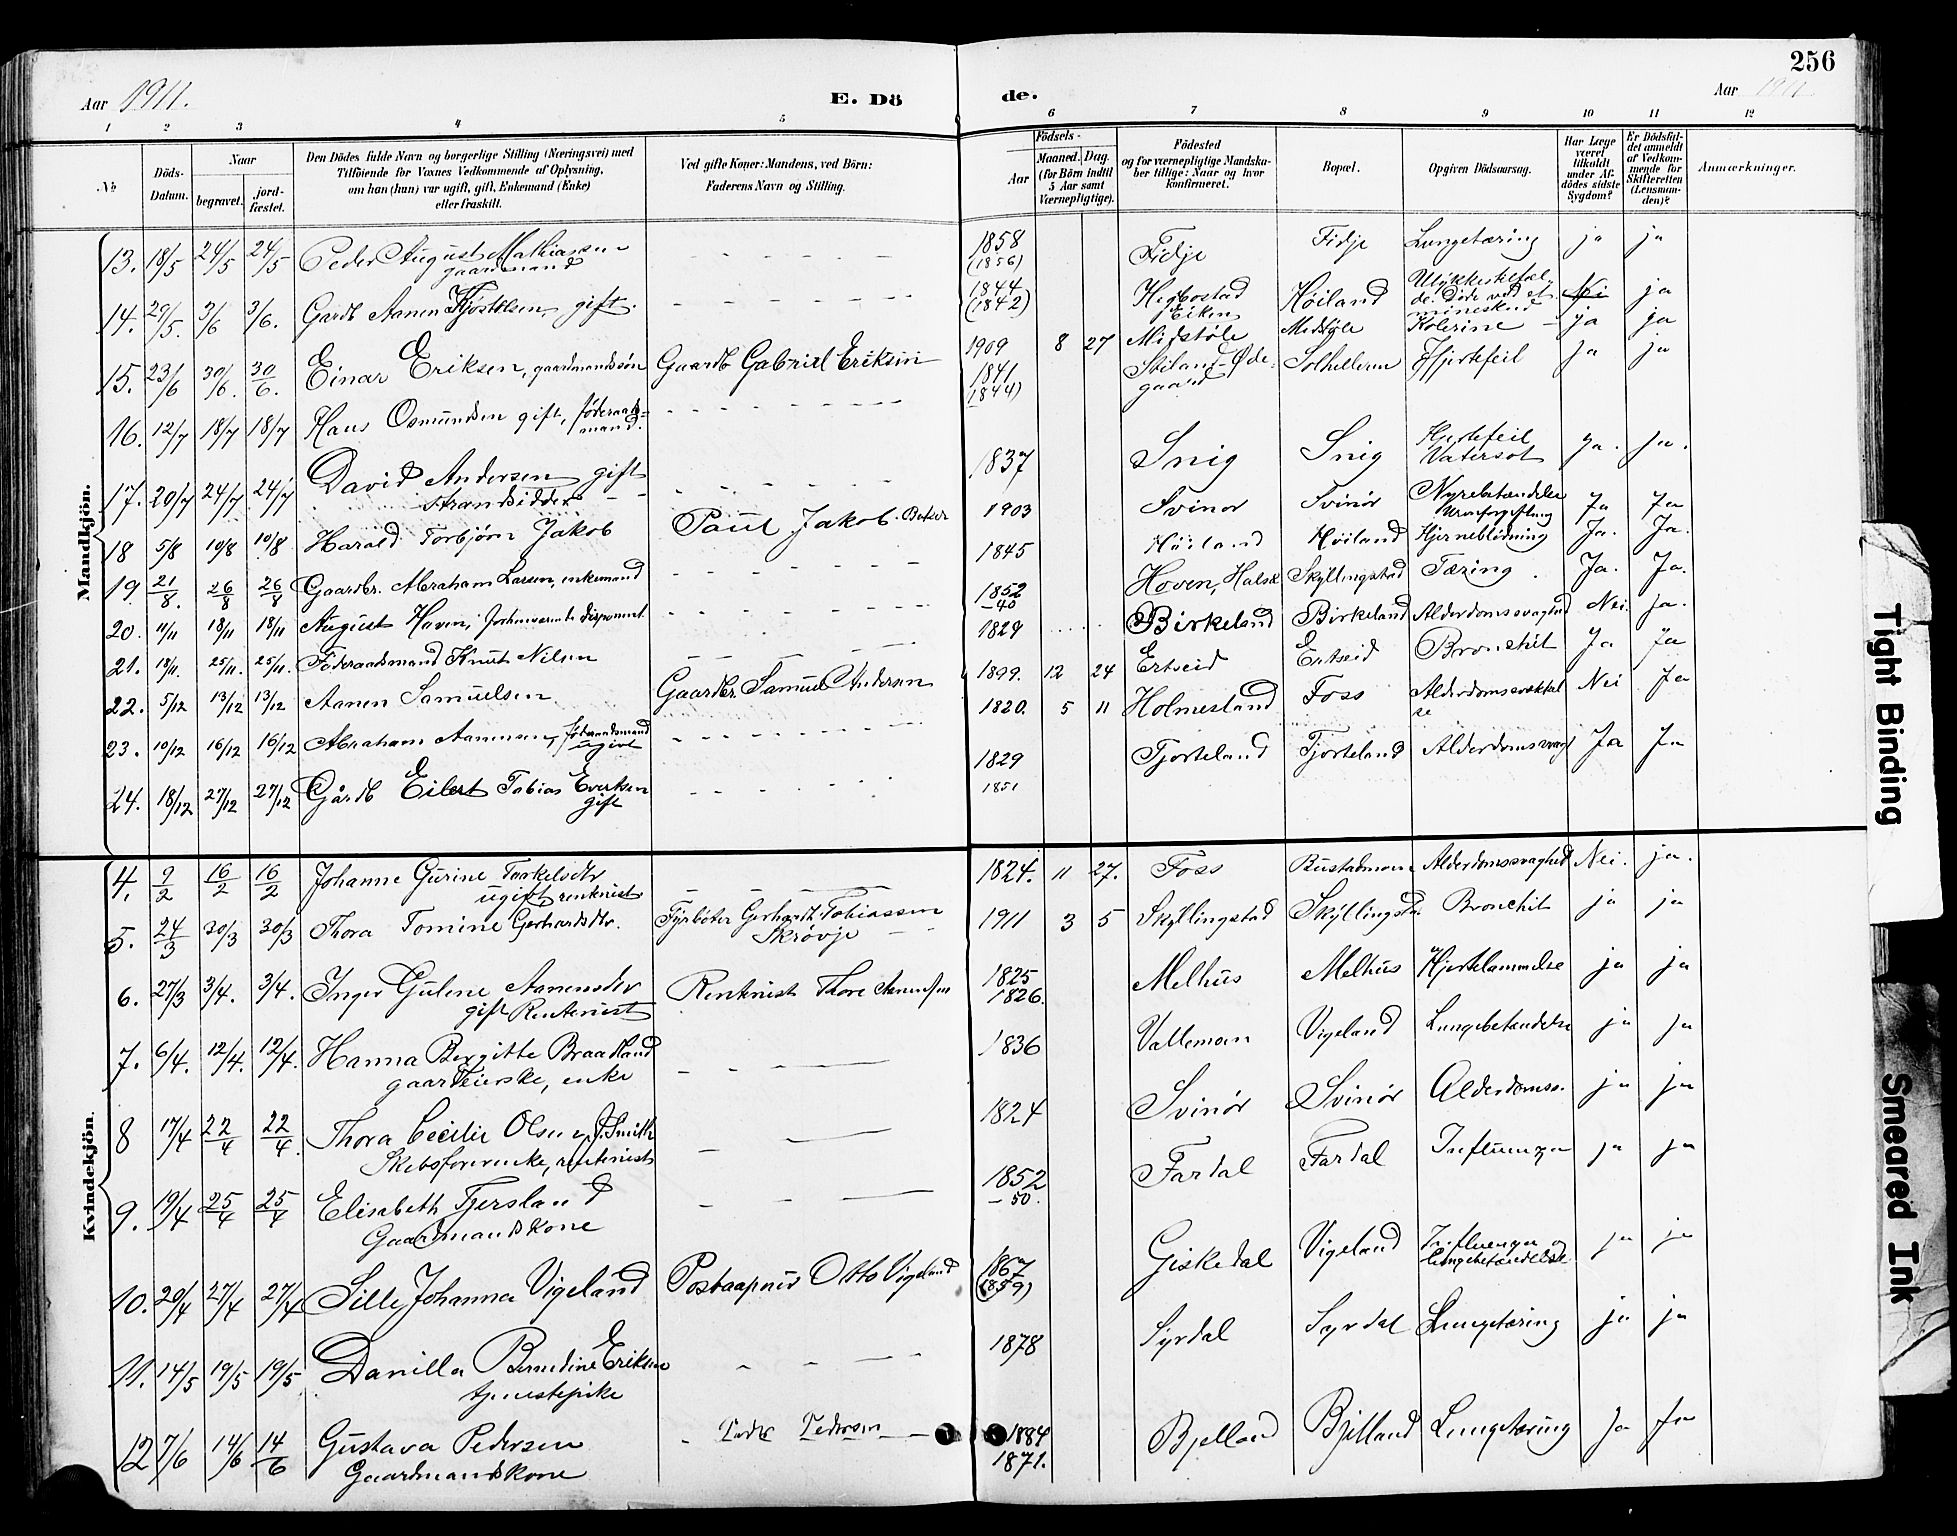 256
Aar 1911.
E. Dö
de.
Aar 1911
1 2 3 4 5 6 7 8 9 10 11 12
No
Döds-Datum.
Naar
begravet.
jord-fæstet.
Den Dödes fulde Navn og borgerlige Stilling (Næringsvei) med
Tilföiende for Voxnes Vedkommende af Oplysning,
om han (hun) var ugift, gift, Enkemand (Enke)
eller fraskilt.
Ved gifte Koner: Mandens, ved Börn:
Faderens Navn og Stilling.
Födsels-
Aar
Maaned. Dag.
(for Börn indtil
5 Aar samt
Værnepligtige).
Födested
og for værnepligtige Mandska-
ber tillige: Naar og hvor
konfirmeret.
Bopæl.
Opgiven Dödsaarsag.
Har Læge
været
tilkaldt
under Af-
dödes sidste
Sygdom?
Er Dödsfal-
det anmeldt
af Vedkom-
mende for
Skifteretten
(Lensman-
den)?
Anmærkninger.
Mandkjön.
13. 18/5 24/5 24/5 Peder August Mathiassen gaardmand 1858 (1856) Fidje Fidje Lungetæring ja ja
14. 29/5. 3/6 3/6. Gardb Aanen Kjøstolsen, gift. 1844 (1842) Hegbostad Eiken Høiland Ulykkestilfæl-de. Døde ved et mineskud Nei ja
15. 23/6 30/6. 30/6. Einar Eriksen, gaardmandssøn Gaardb Gabriel Eriksen 1909 8 27 Midstøle Midstøle Kolerine - ja ja
16. 12/7 18/7 18/7 Hans Osmundsen gift, føderaads-mand. 1841 1844) Stiland-Øde-gaard Solhelleren Hjertefeil ja ja
17. 20/7 24/7 24/7 David Andersen gift strandsidder 1837 Snig Snig Hjertefeil Vatersot ja. ja.
18 5/8 10/8 10/8 Harald Torbjørn Jakob Paul Jakob. Bøker 1903 Svinor Svinør Nyrebetændelse Urinforgiftning Ja Ja
19 21/8. 26/8 26/8 Gaardbr. Abraham Larsen, enkemand 1845 Høiland Høiland Hjerneblødning Ja. Ja.
20. 11/11 18/11 18/11 August Hoven, disponent 1852 -40 Hoven, Halsk Skyllingstad Tæring. Ja. Ja.
21. 18/11. 25/11. 25/11. Føderaadsmand Knut Nilsen 1829 Birkeland Birkeland Alderdomssvaghed Nei. ja.
22. 5/12 13/12 13/12 Aanen Samuelsen Gaardbr. Samuel Andersen 1899. 12 24 Ertseid Ertseid Bronchit Ja Ja
23. 10/12 16/12 16/12 Abraham Aanensen, føderaadsmand ugivt 1820. 5 11 Holmesland Foss Alderdomssvækkel se Nei Ja
24. 18/12 27/12 27/12 Gårdb Eilert Tobias Evertsen gift 1829 1851 Tjorteland Tjorteland Alderdomssvagh Ja Ja
Kvindekjön.
4. 9/2 16/2 16/2 Johanne Gurine Torkelsdtr ugift, rentenist 1824. 11 27. Foss Bustadmoen Alderdomssvaghed Nei. ja.
5. 24/3 30/3 30/3 Thora Tomine Gerhardsdtr. Fyrbøter Gerhardt Tobiassen Skrøvje 1911 3 5 Skyllingstad Skyllingstad. Bronchit ja ja
6. 27/3 3/4. 3/4. Inger Gulene Aanensdtr gift Rentenist Rentenist Thore Aanensen 1825 1826. Melhus Melhus Hjertelammelse ja ja
7. 6/4. 12/4. 12/4. Hanna Bergitte Braadland gaardeierske, enke 1836 Vallemoen Vigeland Lungebetændelse ja ja
8 17/4 22/4 22/4. Thora Cecilie Olsen, f. Smith Skibsførerenke, rentenist 1824 Svinør Svinør Alderdomss. ja ja
9. 19/4 25/4 25/4 Elisabeth Fjersland Gaardmandskone 1852 -50. Fardal Fardal Influenza ja ja
10. 20/4 27/4 27/4 Sille Johanna Vigeland Postaapner Otto Vigeland 1867 (1859) Giskedal Vigeland Influenza og Lungebetændelse ja ja
11. 14/5 19/5 19/5 Danilla Berndine Eriksen tjenestepike 1878 Syrdal Syrdal Lungetæring ja ja
12 7/6 14/6 14/6 Gustava Pedersen Gaardmandskone Peder Pedersen 1884 1871. Bjelland Bjelland Lungetæring Ja Ja
Tight Binding
Smeared Ink